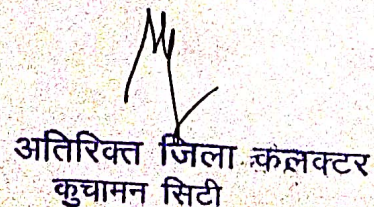 अतिरिक्त जिला कलक्टर
कुचामन सिटी